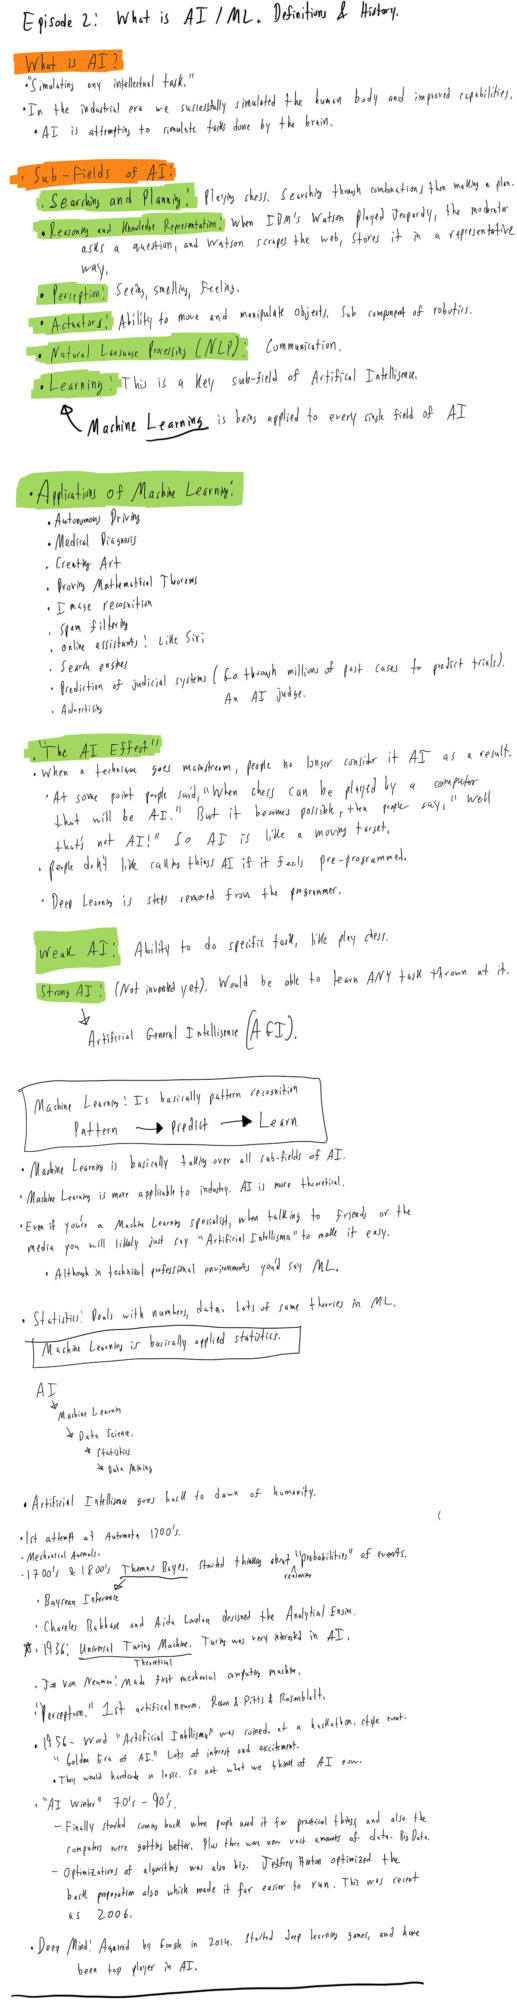 Episode 2: What is AI/ML. Definitions & History.
What is AI?
• "Simulating any intellectual task."
• In the industrial era we successfully simulated the human body and improved capabilities.
• AI is attempting to simulate tasks done by the brain.
• Sub-Fields of AI:
• Searching and Planning: Playing chess. Searching through combinations then making a plan.
• Reasoning and Knowledge Representation: When IBM's Watson played Jeopardy, the moderator
asks a question, and Watson scrapes the web, stores it in a representative
way.
• Perception: Seeing, smelling, feeling.
• Actuators: Ability to move and manipulate objects. Sub component of robotics.
• Natural Language Processing (NLP): Communication.
• Learning: This is a key sub-field of Artifical Intelligence.
Machine Learning is being applied to every single field of AI
• Applications of Machine Learning:
• Autonomous Driving
• Medical Diagnosis
• Creating Art
• Proving Mathematical Theorems
• Image recognition
• Spam filtering
• online assistants: Like Siri
• Search engines
• Prediction of judicial systems (Go through millions of past cases to predict trials).
An AI judge.
• Advertising
• "The AI Effect"
• When a technique goes mainstream, people no longer consider it AI as a result.
• At some point people said, "When chess can be played by a computer
that will be AI." But it becomes possible, then people say, "Well
that's not AI!" So AI is like a moving target.
• People don't like calling things AI if it feels pre-programmed.
• Deep Learning is steps removed from the programmer.
Weak AI: Ability to do specific task, like play chess.
Strong AI: (Not invented yet). Would be able to learn ANY task thrown at it.
Artificial General Intelligence (AGI).
Machine Learning: Is basically pattern recognition
Pattern → Predict → Learn
• Machine Learning is basically taking over all sub-fields of AI.
• Machine Learning is more applicable to industry. AI is more theoretical.
• Even if you're a Machine Learning specialist, when talking to friends or the
media you will likely just say "Artificial Intelligence" to make it easy.
• Although in technical professional environments you'd say ML.
• Statistics: Deals with numbers, data. Lots of same theories in ML.
Machine Learning is basically applied statistics.
AI
Machine Learning
Data Science.
Statistics
Data Mining
• Artificial Intelligence goes back to dawn of humanity.
• 1st attempt at Automata 1700's.
• Mechanical Animals.
• 1700's & 1800's Thomas Bayes. Started thinking about "probabilities" of events.
reasoning
• Baysean Inference
• Chareles Babbage and Aida Lovelace designed the Analytial Engine.
• 1936: Universal Turing Machine. Turing was very interested in AI.
Theoretical
• Jon Von Neuman: Made first mechanical computing machine.
• "Perceptron." 1st artifical neuron. & Pitts & Rosenblatt.
• 1956 - Word "Artificial Intelligence" was coined, at a hackathon style event.
"Golden Era of AI." Lots of interest and excitement.
• They would hardcode in logic. So not what we think of AI now.
• "AI Winter" 70's - 90's.
- Finally started coming back when people used it for practical things, and also the
computers were getting better. Plus there were now vast amounts of data. Big Data.
- Optimizations of algorithms was also big. Jeffrey Hinton optimized the
back propogation also which made it far easier to run. This was recent
as 2006.
• Deep Mind: Aquired by Google in 2014. Started deep learning games, and have
been top player in AI.